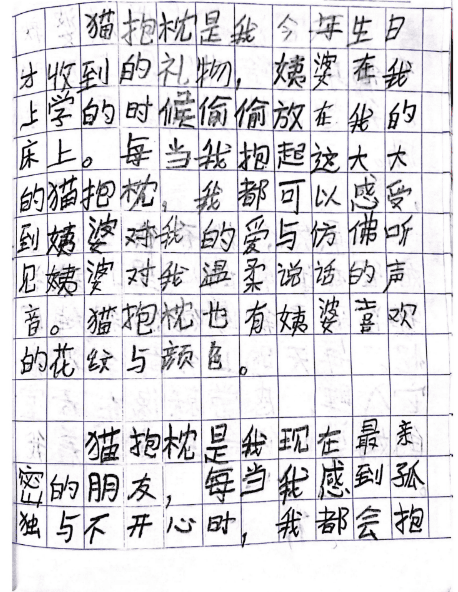 猫抱枕是我今年生日
才收到的礼物，姨婆在我
上学的时候偷偷放在我的
床上。每当我抱起这大大
的猫抱枕，我都可以感受
到姨婆对我的爱与仿佛听
见姨婆对我温柔说话的声
音。猫抱枕也有姨婆喜欢
的花纹与颜色。
猫抱枕是我现在最亲
密的朋友，每当我感到孤
独与不开心时，我都会抱